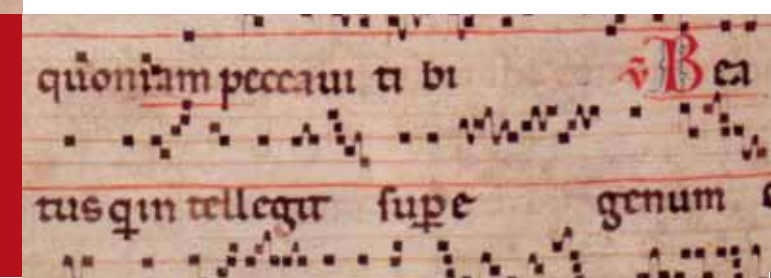 quoniam peccaui ti bi ℣ Bea
tus qin tellegit supe genum